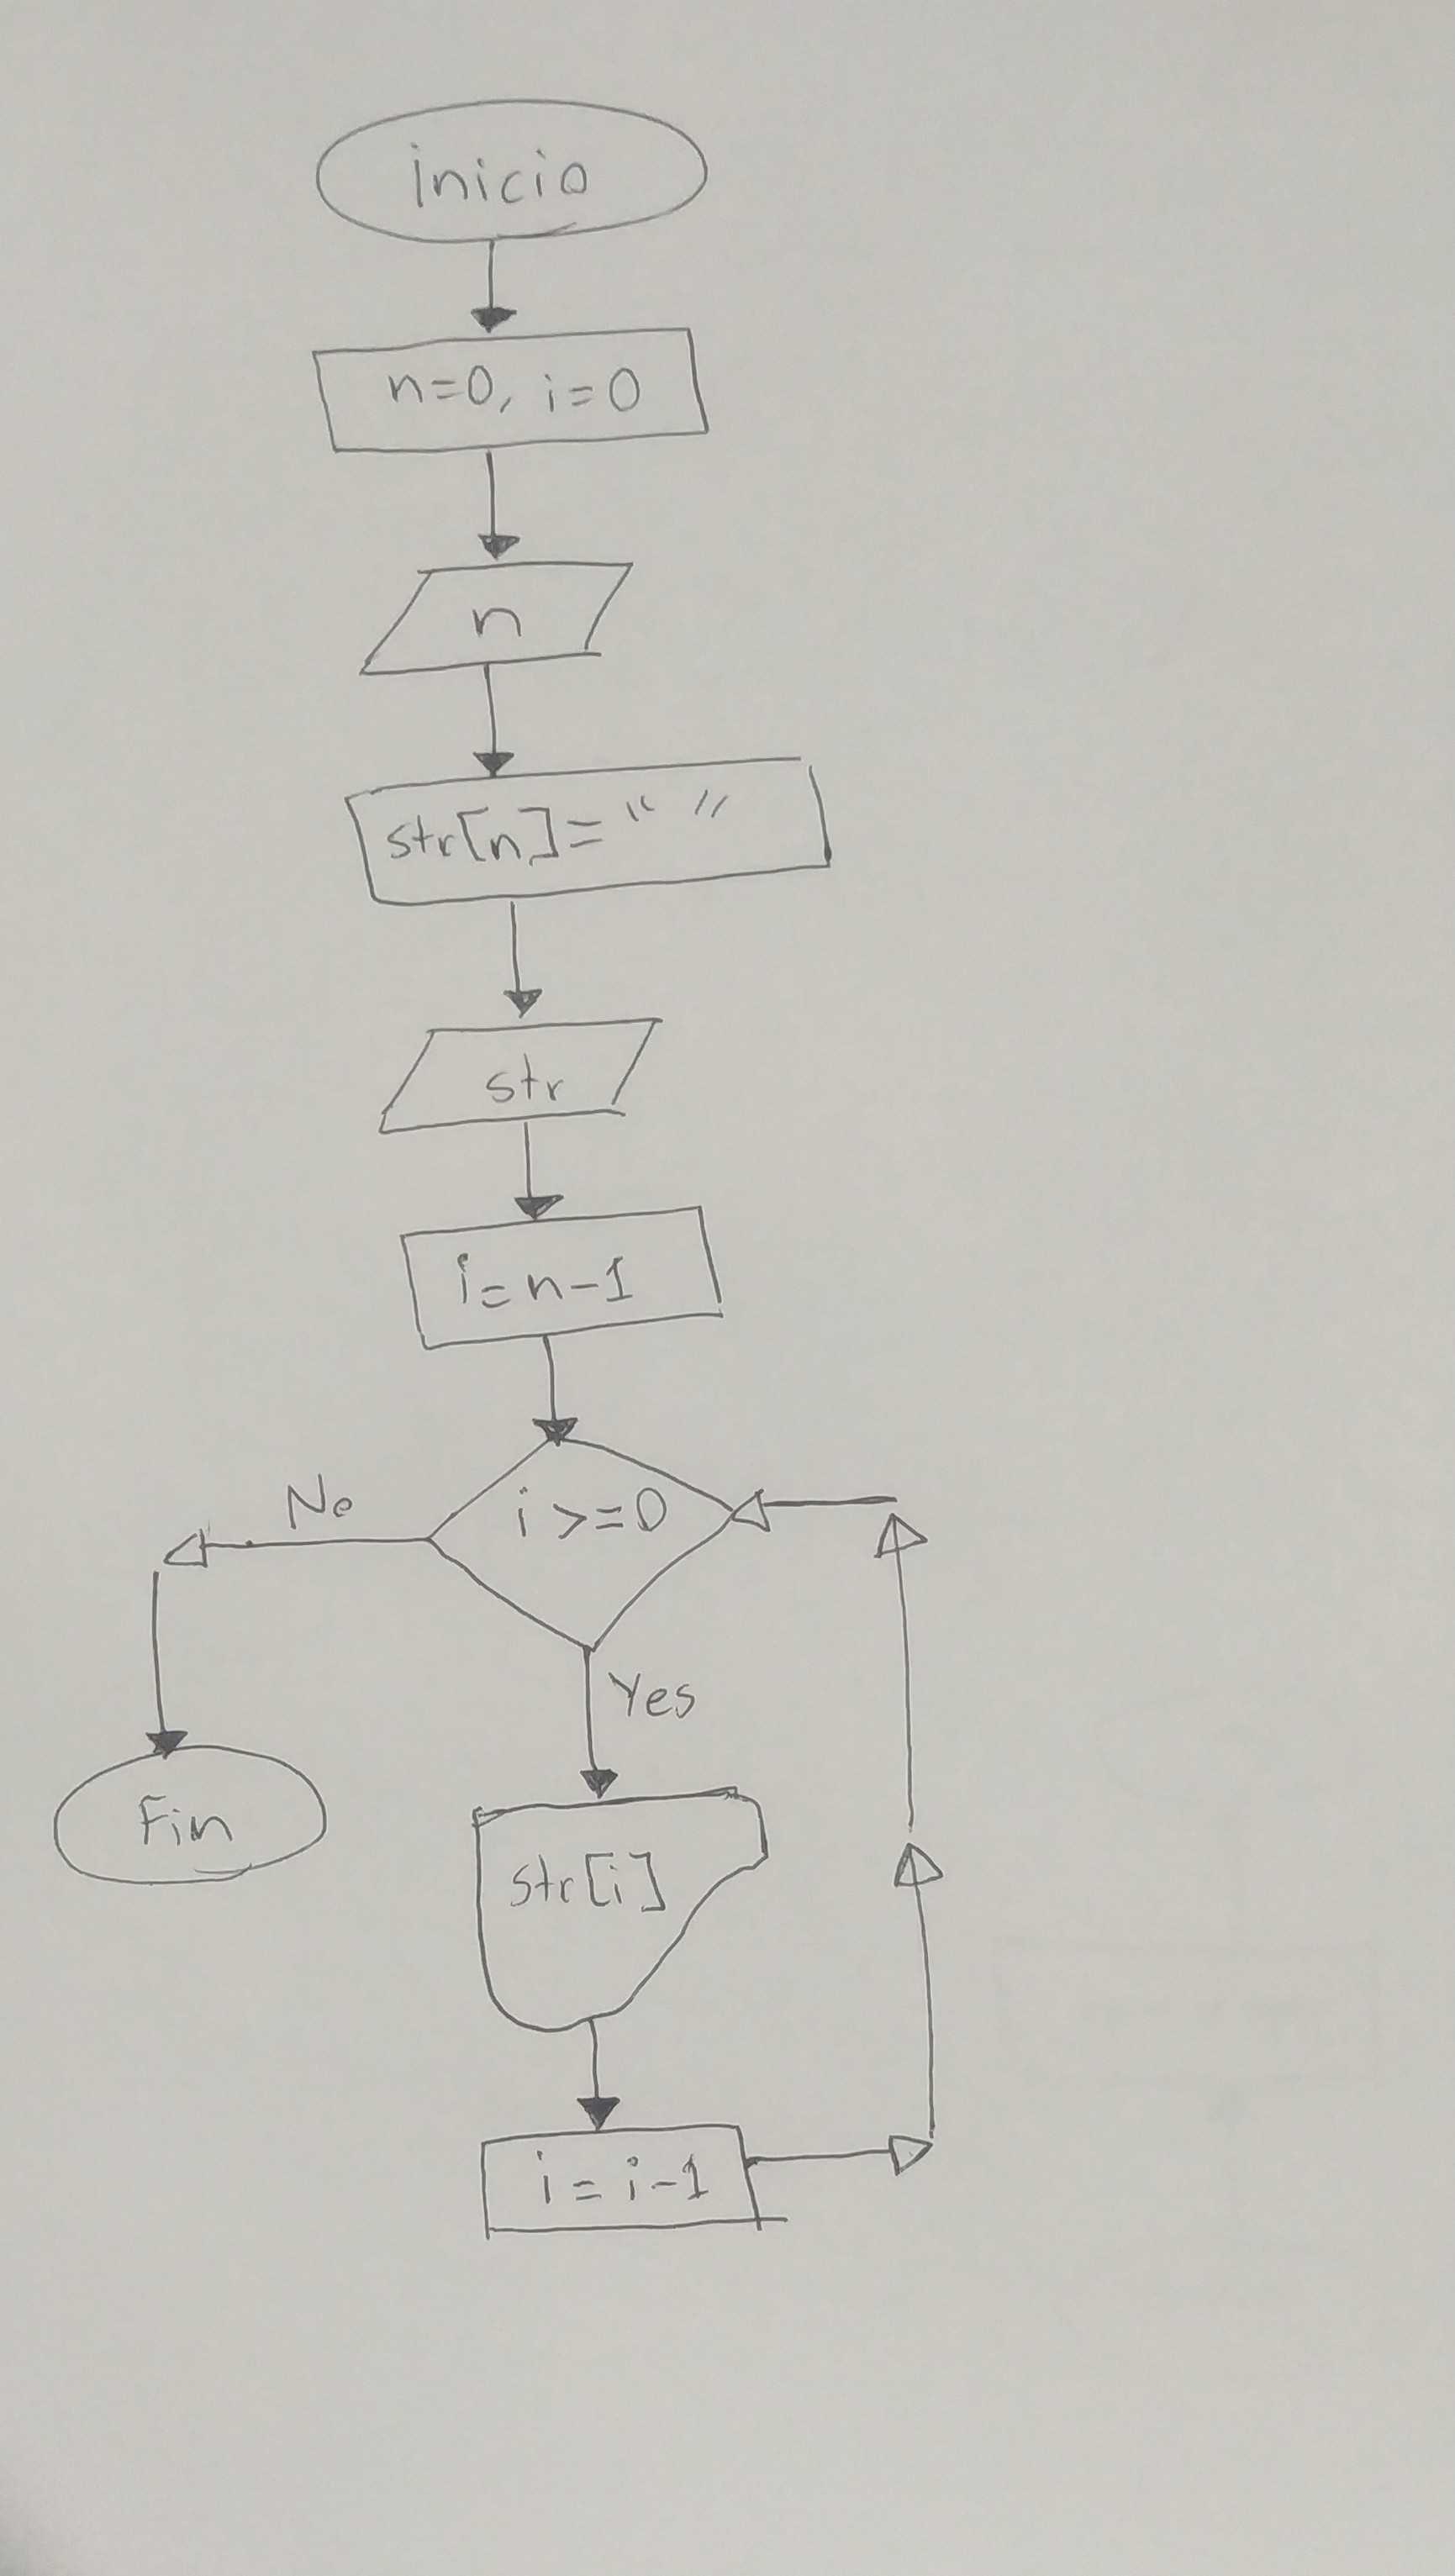 inicio
n=0, i=0
n
str[n]=“ ”
str
i=n-1
i >=0
No
Yes
Fin
str[i]
i = i-1